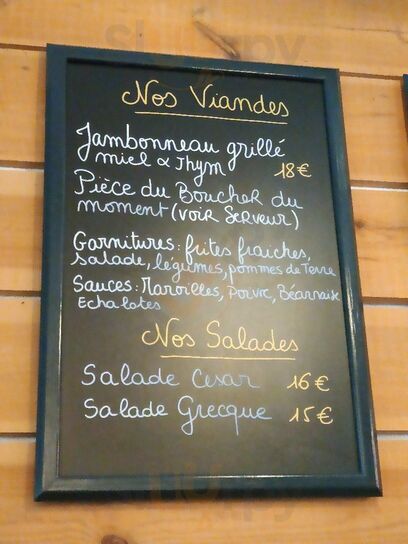 Nos Viandes
Jambonneau grillé
miel & Thym 18€
Pièce du Boucher du
moment (voir Serveur)
Garnitures: frites fraiches,
salade, légumes, pommes de Terre
Sauces: Maroilles, Poivre, Béarnaise
Echalotes
Nos Salades
Salade Cesar 16€
Salade Grecque 15€